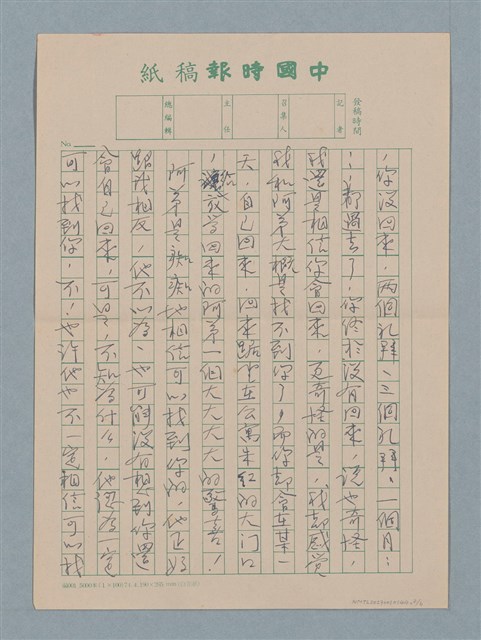 中國時報稿紙
發稿時間
記者
召集人
主任
總編輯
No
，你沒回來，兩個礼拜、三個礼拜、一個月⋯
⋯都過去了，你終於沒有回來，說也奇怪，
我還是相信你會回來，更奇怪的是，我却感覺
我和阿弟大概是找不到你了，而你却會在某一
天，自己回來，回來蹲坐在公寓朱紅的大门口
，給夜学回來的阿弟一個大大大大的驚喜！
阿弟是痴痴地相信可以找到你的，他正好
跟我相反，他不以為、也可能没有想到你還
會自己回來，可是，不知為什么，他認為一定
可以找到你，不！也许他也不一定相信可以找